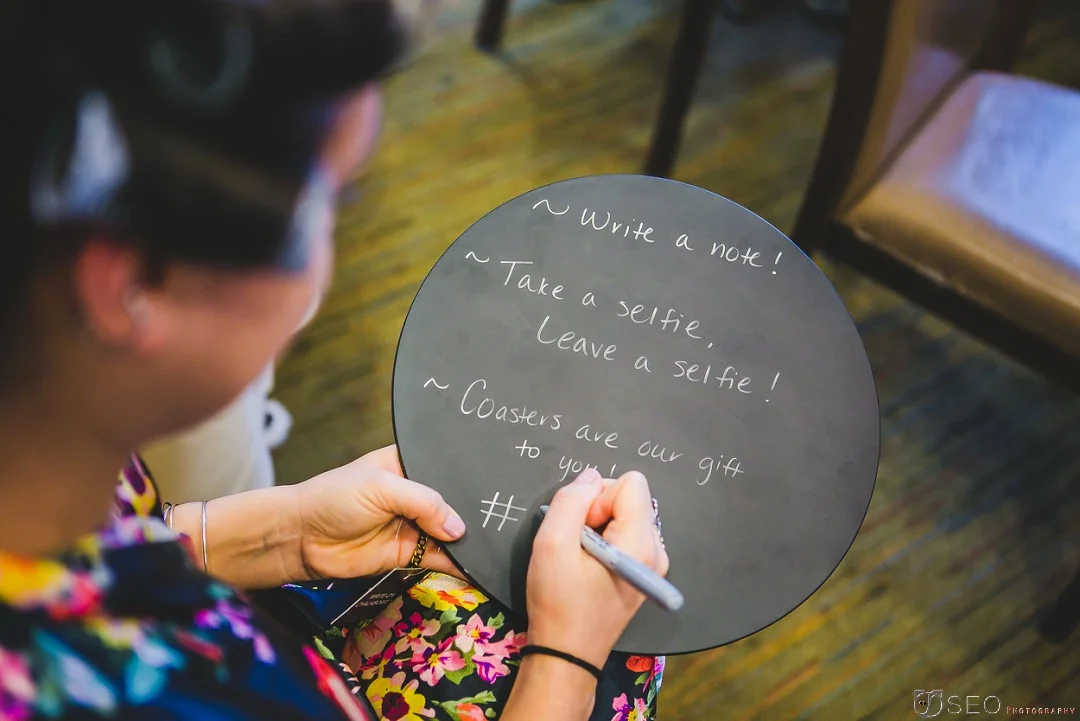 ~ Write a note!
~ Take a selfie,
Leave a selfie!
~ Coasters are our gift
to you!
#
SEO PHOTOGRAPHY